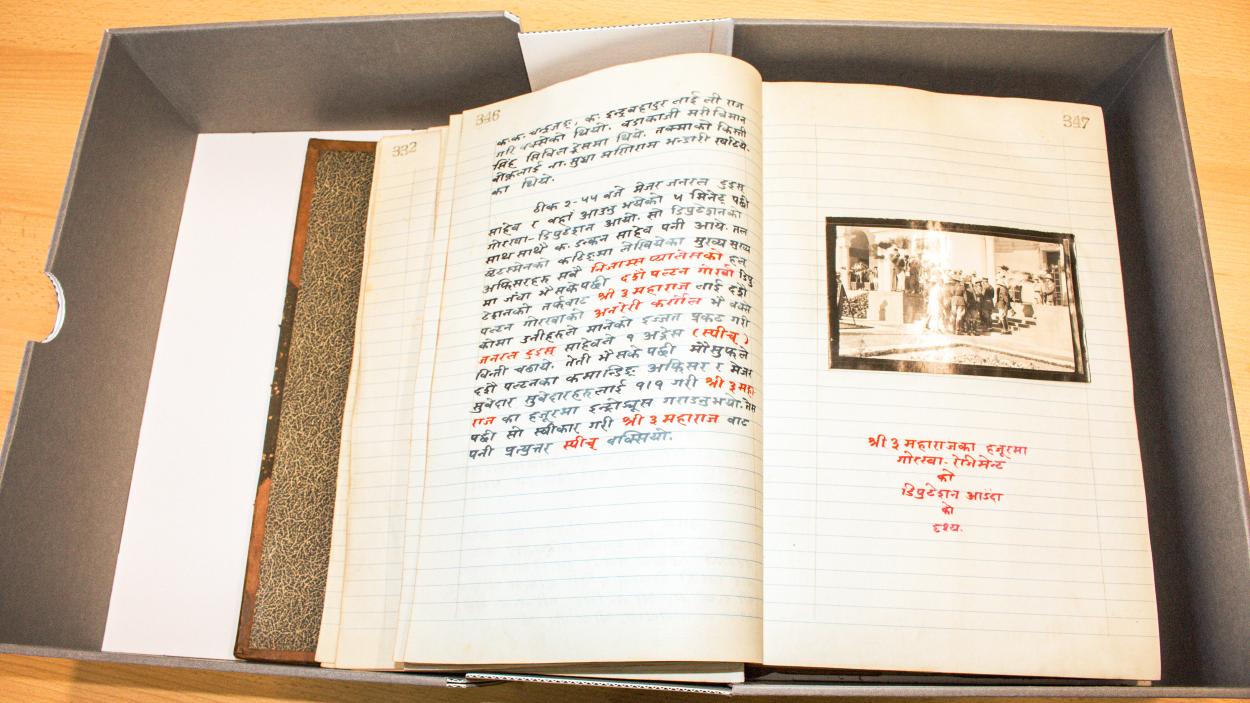 332
346
क.क. चन्द्रजङ्ग, क. इन्द्रबहादुर लाई ली राज
गरि बक्सेको थियो. बडाकाजी मरीचिमान
सिंह सिविल ड्रेसमा थिये. तक्माको किस्ती
बोक्नलाई ना. सुब्बा मणिराम भण्डारी खटिये
का थिये.
ठीक २-५५ बजे मेजर जनरल टुइस्
साहेब र वहां आउनु भयेको ५ मिनेट पछी
गोरखा-डिपुटेशन आयो. सो डिपुटेशनको
साथ साथै क. डन्कन साहेब पनी आये. तल
खेटस्मेनको कटिङ्मा लेखियेका मुख्य मुख्य
अफिसरहरु सबै निजाम्स प्यालेसको हल
मा जंवा भै सकेपछी दशौ पल्टन गोरखा डिपु
टेशनको तर्फबाट श्री ३ महाराज लाई दशौ
पल्टन गोरखाको अनरेरी कर्णेल भै बक्से
कोमा उनीहरुले मानेको इज्जत प्रकट गरी
जनरल टुइस् साहेबले १ अड्रेस (स्पीच्)
बिन्ती चढाये. तेती भै सके पछी मौसुफले
दशौ पल्टनका कमान्डिङ्ग अफिसर र मेजर
सुबेदार सुबेदारहरुलाई १।१ गरी श्री ३ महा
राज का हजूरमा इन्ट्रोड्यूस गराउनु भयो. तेस
पछी सो स्वीकार गरी श्री ३ महाराज बाट
पनी प्रत्युत्तर स्पीच् बक्सियो.
347
श्री ३ महाराजका हजूरमा
गोरखा-रेजिमेन्ट
को
डिपुटेशन आउंदा
को
दृश्य.